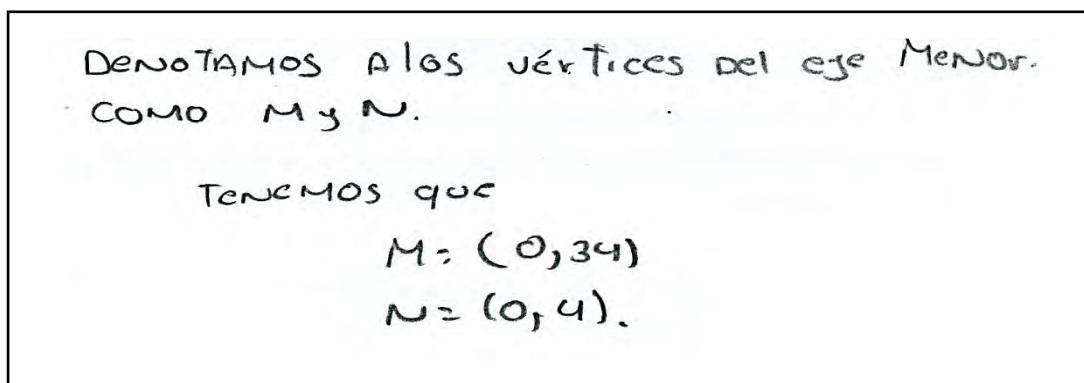 Denotamos a los vértices del eje Menor.
como M y N.
Tenemos que
M = (0, 34)
N = (0, 4).